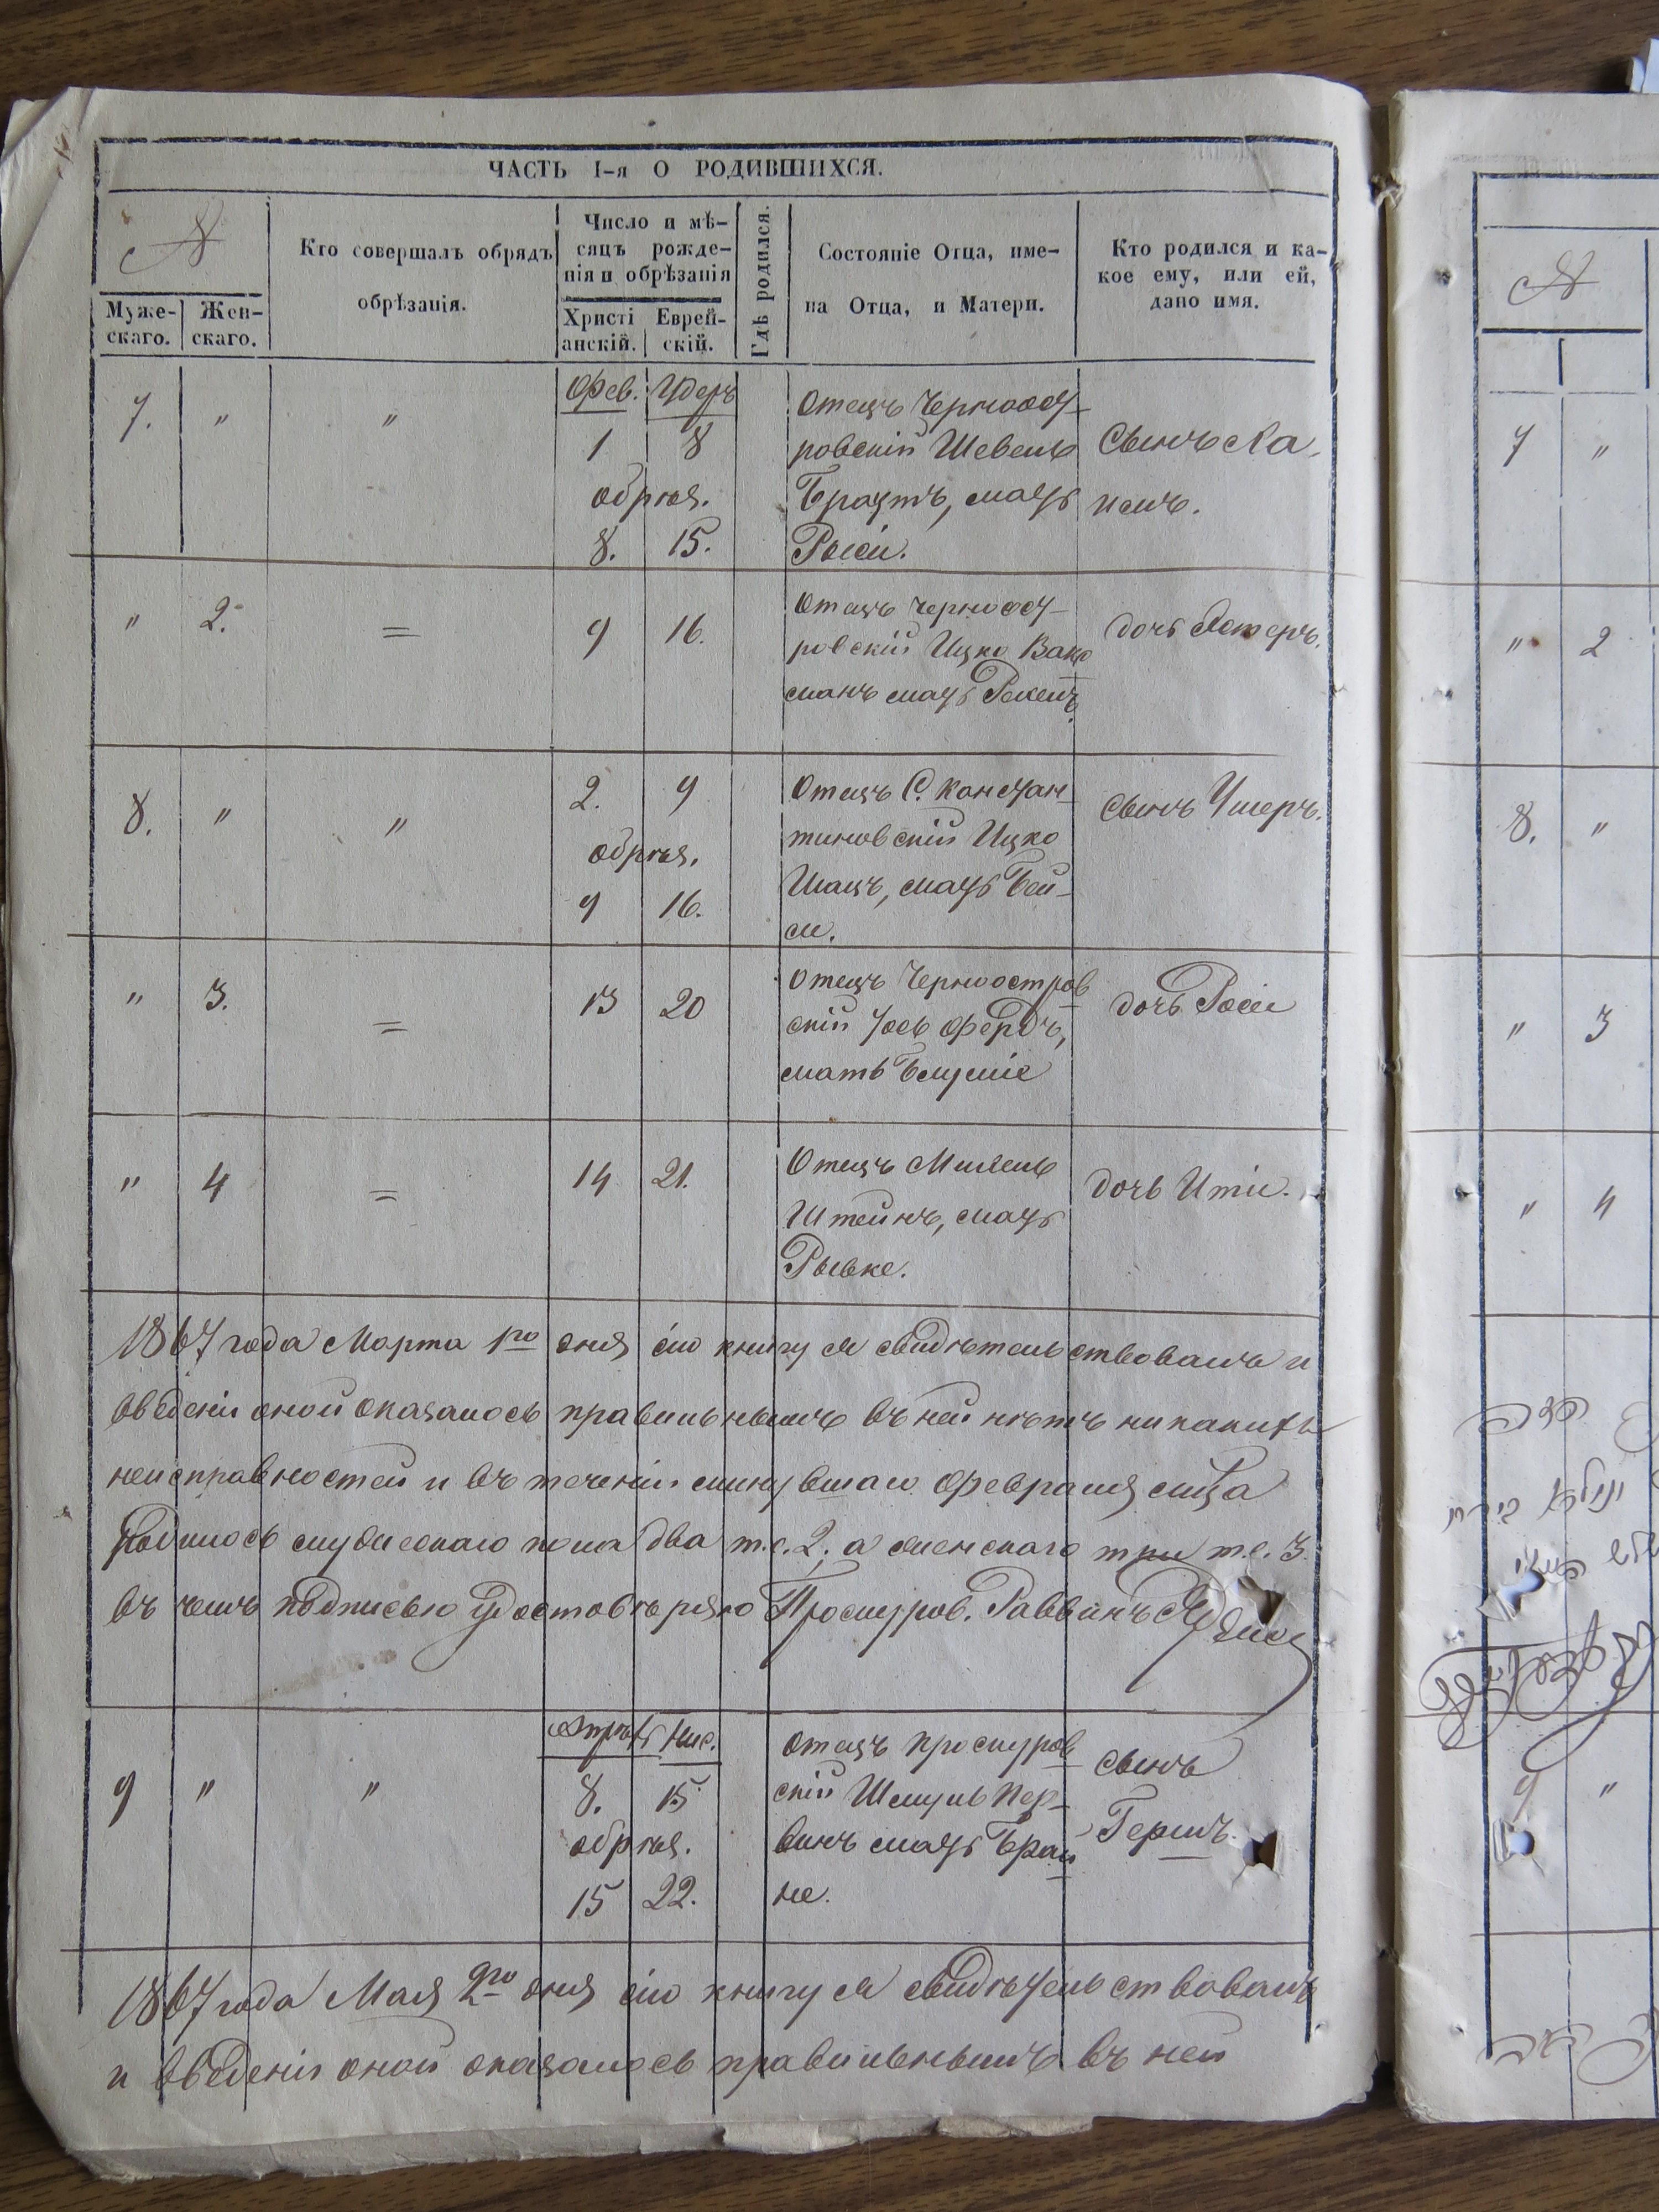 ЧАСТЬ I-я О РОДИВШИХСЯ.
№
Муже-
скаго.
Жен-
скаго.
Кто совершалъ обрядъ
обрѣзанія.
Число и мѣ-
сяцъ рожде-
нія и обрѣзанія
Христі
анскій.
Еврей-
скій.
Гдѣ родился.
Состояніе Отца, име-
на Отца, и Матери.
Кто родился и ка-
кое ему, или ей,
дано имя.
Фев. Удеръ
7. " " 1 8
обрѣз.
8. 15.
Отецъ Черноост-
ровскій Шевель
Браутъ, мать
Рыси.
Сынъ Ха-
имъ.
" 2. = 9 16.
Отецъ черноост-
ровскій Ицко Вакс
манъ мать
дочь Эстеръ.
8. " " 2. 9
обрѣз.
9 16.
Отецъ С. Констан-
тиновскій Ицко
Шацъ, мать Бей-
ли.
сынъ Ушеръ.
" 3. = 13 20
Отецъ Черноостров
скій Іось Фердъ,
мать
дочь Роси
" 4 = 14 21.
Отецъ
Штейнъ, мать
Рывке.
дочь Иты.
1867 года Марта 1го дня сію книгу я свидѣтельствовалъ и
введеніи оной оказалось правильнымъ въ ней нѣтъ никакихъ
неисправностей и въ теченіи минувшаго Февраля мца
родилось мужескаго пола два т.е. 2, а женскаго три т.е. 3.
въ чемъ подписью удостовѣряю Проскуров. Раввинъ
Апрѣль Нис.
9 " " 8. 15
обрѣз.
15 22.
Отецъ проскуров
скій Шмуль Пер-
винъ мать Брай
не.
сынъ
Гершъ.
1867 года Мая 2го дня сію книгу я свидѣтельствовалъ
и введеніи оной оказалось правильнымъ въ ней
№
7 "
" 2
8. "
" 3
" 4
9 "